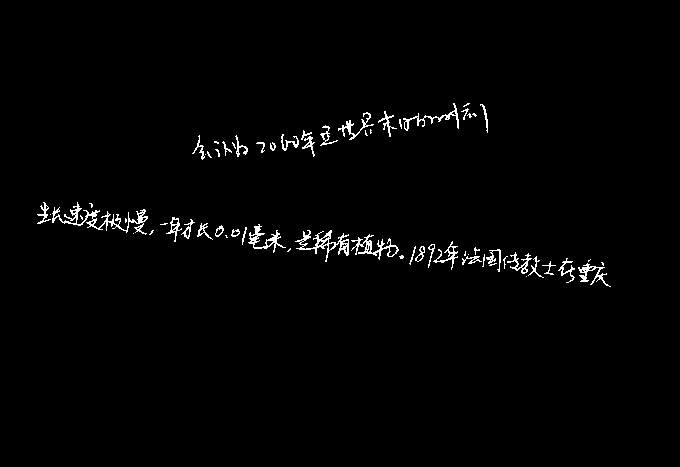 会认为2060年是世界末日的时刻
生长速度极慢，一年才长0.01毫米，是稀有植物。1892年法国传教士在重庆